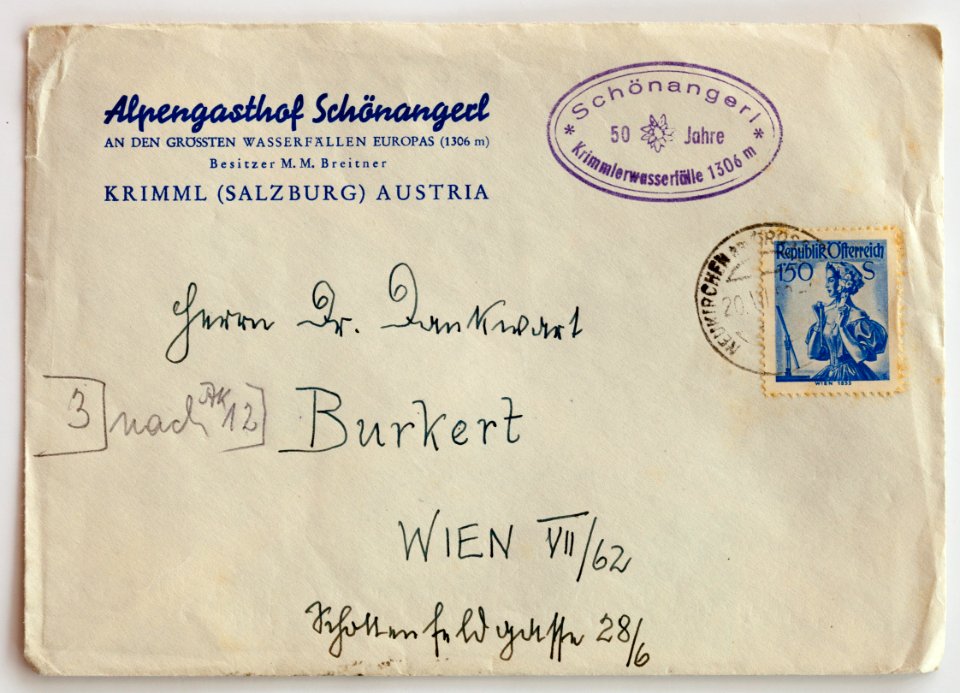 Alpengasthof Schönangerl
AN DEN GRÖSSTEN WASSERFÄLLEN EUROPAS (1306 m)
Besitzer M. M. Breitner
KRIMML (SALZBURG) AUSTRIA
* Schönangerl *
50 Jahre
Krimmlerwasserfälle 1306 m
NEUKIRCHEN AM GROSS
20.VI
Republik Österreich
1'50 S
WIEN 1853
Herrn Dr. Dankwart
3] nach AK 12]
Burkert
WIEN VII/62
Schottenfeldgasse 28/6